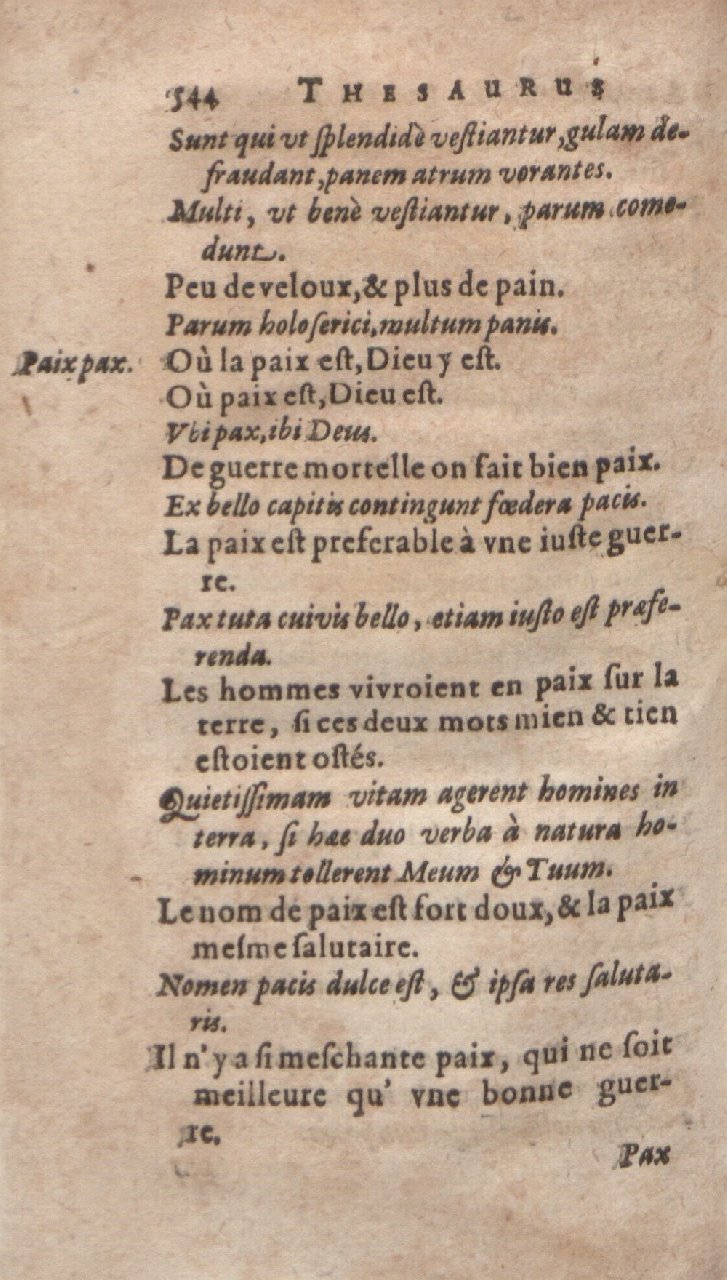 544 THESAURUS
Sunt qui vt ſplendidè veſtiantur, gulam de-
fraudant, panem atrum vorantes.
Multi, vt benè veſtiantur, parum come-
dunt.
Peu de veloux, & plus de pain.
Parum holoſerici, multum panis.
Paix pax. Où la paix eſt, Dieu y eſt.
Où paix eſt, Dieu eſt.
Vbi pax, ibi Deus.
De guerre mortelle on fait bien paix.
Ex bello capitis contingunt fœdera pacis.
La paix eſt preferable à vne iuſte guer-
re.
Pax tuta cuivis bello, etiam iuſto eſt præfe-
renda.
Les hommes vivroient en paix ſur la
terre, ſi ces deux mots mien & tien
eſtoient oſtés.
Quietiſſimam vitam agerent homines in
terra, ſi hæc duo verba à natura ho-
minum tollerent Meum & Tuum.
Le nom de paix eſt fort doux, & la paix
meſme ſalutaire.
Nomen pacis dulce eſt, & ipſa res ſaluta-
ris.
Il n'y a ſi meſchante paix, qui ne ſoit
meilleure qu' vne bonne guer-
re.
Pax